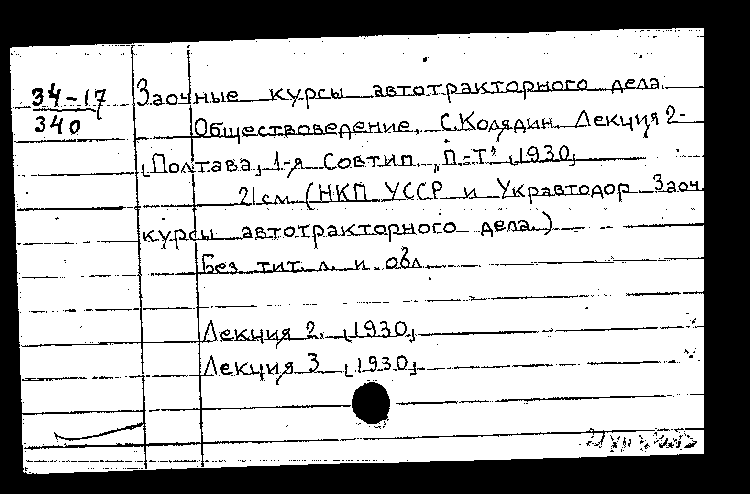 34-17
340
Заочные курсы автотракторного дела.
Обществоведение. С. Колядин. Лекция 2-
[Полтава, 1-я Совтип. "П-Т", 1930]
21 см. (НКП УССР и Укравтодор Заоч.
курсы автотракторного дела.)
Без тит. л. и обл.
Лекция 2. [1930]
Лекция 3 [1930]